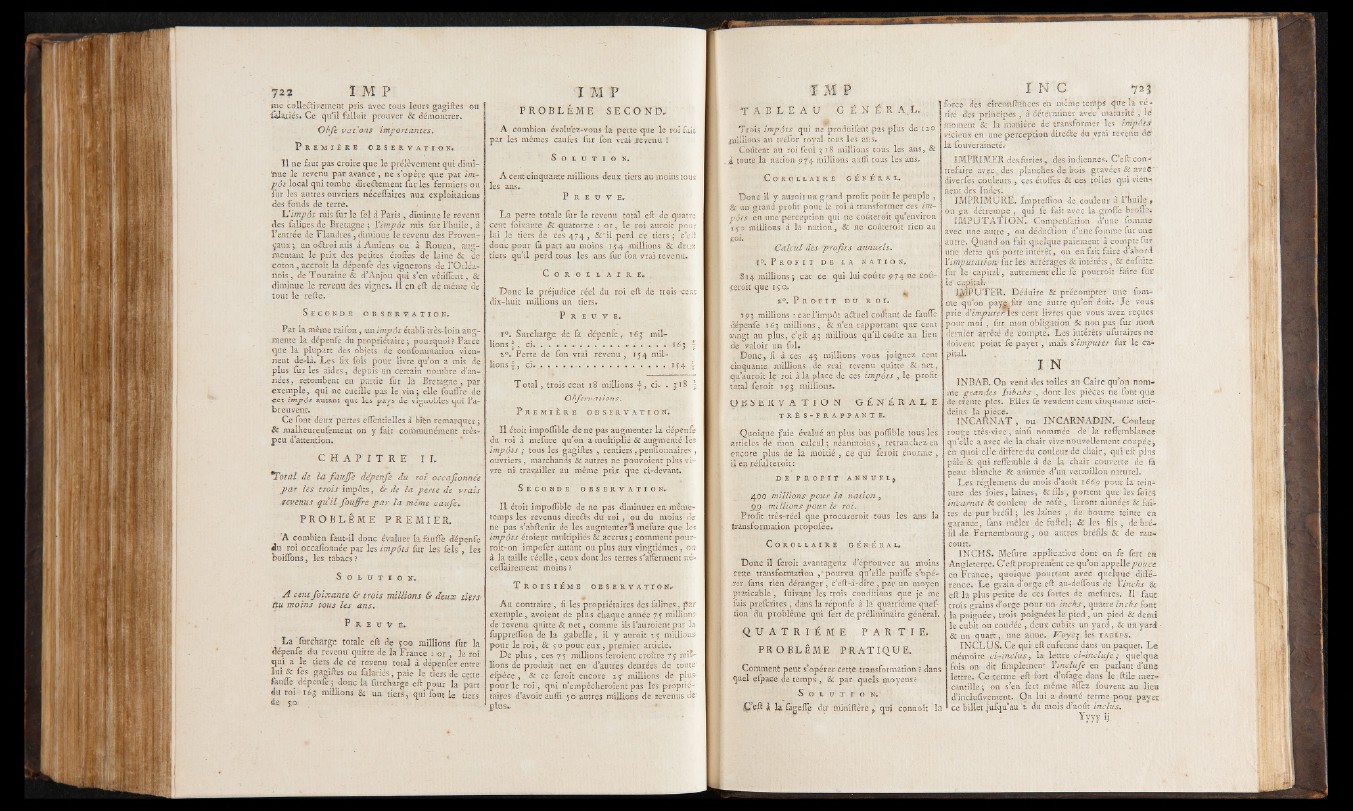 722 IMP
me collectivement pris avec tous leurs gagistes ou
salariés. Ce qu'il falloit prouver & démontrer.
Observations importantes.
PREMIÈRE OBSERVATION.
Il ne faut pas croire que le prélèvement qui dimi-
nue le revenu par avance, ne s'opère que par im-
pôt local qui tombe directement sur les fermiers ou
sur les autres ouvriers nécessaires aux exploitations
des fonds de terre.
L'impôt mis sur le sel à Paris, diminue le revenu
des salines de Bretagne; l'impôt mis sur l'huile, à
l'entrée de Flandres, diminue le revenu des Proven-
çaux; un octroi mis à Amiens ou à Rouen, aug-
mentant le prix des petites étoffes de laine & de
coton, accroît la dépense des vignerons de l'Orléa-
nois, de Touraine & d'Anjou qui s'en vêtissent, &
diminue le revenu des vignes. Il en est de même de
tout le reste.
SECONDE OBSERVATION.
Par la même raison, un impôt établi très-loin aug-
mente la dépense du propriétaire; pourquoi? Parce
que la plupart des objets de consommation vien-
nent de-là. Les six sols pour livre qu'on a mis de
plus sur les aides, depuis un certain nombre d'an-
nées, retombent en partie sur la Bretagne, par
exemple, qui ne cueille pas le vin; elle souffre de
ces impôts autant que les pays de vignobles qui l'a-
breuvent.
Ce sont deux pertes essentielles à bien remarquer;
& malheureusement on y fait communément très-
peu d'attention.
CHAPITRE II.
Total de la fausse dépense du roi occasionnée
par les trois impôts, & de la perte de vrais
revenus qu'il souffre par la même cause.
PROBLÊME PREMIER.
A combien faut-il donc évaluer la fausse dépense
du roi occasionnée par les impôts sur les sels, les
boissons, les tabacs?
SOLUTION.
A cent soixante & trois millions & deux tiers
au moins tous les ans.
PREUVE.
La surcharge totale est de 500 millions sur la
dépense du revenu quitte de la France : or, le roi
qui a le tiers de ce revenu total à dépenser entre
lui & ses gagistes ou salariés, paie le tiers de cette
fausse dépense; donc la surcharge est pour la part
du roi 163 millions & un tiers, qui font le tiers
de 50
IMP
PROBLÊME SECOND.
A combien évaluez-vous la perte que le roi fait
par les mêmes causes sur son vrai revenu?
SOLUTION.
A cent cinquante millions deux tiers au moins tous
les ans.
PREUVE.
La perte totale sur le revenu total est de quatre
cent soixante & quatorze : or, le roi auroit pour
lui le tiers de ces 474, & il perd ce tiers; c'est
donc pour sa part au moins 154 millions & deux
tiers qu'il perd tous les ans sur son vrai revenu.
COROLLAIRE.
Donc le préjudice réel du roi est de trois cent
dix-huit millions un tiers.
PREUVE.
1°. Surcharge de sa dépense, 163 mil-
lions , ci. . . . . . . . . . . . . . . . . 163
2°. Perte de son vrai revenu, 154 mil-
lions , ci. . . . . . . . . . . . . . . . . 154
Total, trois cent 18 millions , ci. . . 318
Observations.
PREMIÈRE OBSERVATION.
Il étoit impossible de ne pas augmenter la dépense
du roi à mesure qu'on a multiplié & augmenté les
impôts; tous les gagistes, rentiers, pensionnaires,
ouvriers, marchands & autres ne pouvoient plus vi-
vre ni travailler au même prix que ci-devant.
SECONDE OBSERVATION.
Il étoit impossible de ne pas diminuer en même-
temps les revenus directs du roi, ou du moins de
ne pas s'abstenir de les augmenter à mesure que les
impôts étoient multipliés & accrus; comment pour-
roit-on imposer autant ou plus aux vingtièmes, ou
à la taille réelle, ceux dont les terres s'afferment né-
cessairement moins?
TROISIÈME OBSERVATION.
Au contraire, si les propriétaires des salines, par
exemple, avoient de plus chaque année 75 millions
de revenu quitte & net, comme ils l'auroient par la
suppression de la gabelle, il y auroit 25 millions
pour le roi, & 50 pour eux, premier article.
De plus, ces 75 millions feroient croître 75 mil-
lions de produit net en d'autres denrées de toute
espèce, & ce seroit encore 25 millions de plus
pour le roi, qui n'empêcheroient pas les proprié-
taires d'avoir aussi 50 autres millions de revenus de
plus.
IMP
TABLEAU GÉNÉRAL.
Trois impôts qui ne produisent pas plus de 120
millions au trésor royal tous les ans.
Coûtent au roi seul 318 millions tous les ans, &
à toute la nation 974 millions aussi tous les ans.
COROLLAIRE GÉNÉRAL.
Donc il y auroit un grand profit pour le peuple,
& un grand profit pour le roi à transformer ces im-
pôts en une perception qui ne coûteroit qu'environ
150 millions à la nation, & ne coûteroit rien au
roi.
Calcul des profits annuels.
1°. PROFIT DE LA NATION.
824 millions; car ce qui lui coûte 974 ne coû-
teroit que 150.
2°. PROFIT DU ROI.
193 millions : car l'impôt actuel coûtant de fausse
dépense 163 millions, & n'en rapportant que cent
vingt au plus, c'est 43 millions qu'il coûte au lieu
de valoir un sol.
Donc, si à ces 43 millions vous joignez cent
cinquante millions de vrai revenu quitte & net,
qu'auroit le roi à la place de ces impôts, le profit
total seroit 193 millions.
OBSERVATION GÉNÉRALE
TRÈS-FRAPPANTE.
Quoique j'aie évalué au plus bas possible tous les
articles de mon calcul; néanmoins, retranchez-en
encore plus de la moitié, ce qui seroit énorme,
il en résulteroit:
DE PROFIT ANNUEL,
400 millions pour la nation,
99 millions pour le roi.
Profit très-réel que procureroit tous les ans la
transformation proposée.
COROLLAIRE GÉNÉRAL.
Donc il seroit avantageux d'éprouver au moins
cette transformation, pourvu qu'elle puisse s'opé-
rer sans rien déranger, c'est-à-dire, par un moyen
praticable, suivant les trois conditions que je me
suis prescrites, dans la réponse à la quatrième ques-
tion du problême qui sert de préliminaire général.
QUATRIÉME PARTIE.
PROBLÊME PRATIQUE.
Comment peut s'opérer cette transformation? dans
quel espace de temps, & par quels moyens?
SOLUTION.
C'est à la sagesse du ministère, qui connoît la
INC 723
force des circonstances en même temps que la vé-
rité des principes, à déterminer avec maturité, le
moment & la manière de transformer les impôts
vicieux en une perception directe du vrai revenu de
la souveraineté.
IMPRIMER des suries, des indiennes. C'est con-
trefaire avec, des planches de bois gravées & avec
diverses couleurs, ces étoffes & ces toiles qui vien-
nent des Indes.
IMPRIMURE. Impression de couleur à l'huile,
ou en détrempe, qui se fait avec la grosse brosse.
IMPUTATION. Compensation d'une somme
avec une autre, ou déduction d'une somme sur une
autre. Quand on fait quelque paiement à compte sur
une dette qui porte intérêt, on en fait faire d'abord
l'imputation sur les arrérages & intérêts, & ensuite
sur le capital, autrement elle se pourroit faire sur
le capital.
IMPUTER. Déduire & précompter une som-
me qu'on paye sur une autre qu'on doit. Je vous
prie d'imputer les cent livres que vous avez reçues
pour moi, sur mon obligation & non pas sur mon
dernier arrêté de compte. Les intérêts usuraires ne
doivent point se payer, mais s'imputer sur le ca-
pital.
IN
INBAB. On vend des toiles au Caire qu'on nom-
me grandes Inbabs, dont les pièces ne sont que
de trente pics. Elles se vendent cent cinquante mei-
deins la pièce.
INCARNAT, ou INCARNADIN. Couleur
rouge très-vive, ainsi nommée de la ressemblance
qu'elle a avec de la chair vive nouvellement coupée,
en quoi elle diffère du couleur de chair, qui est plus
pâle & qui ressemble à de la chair couverte de sa
peau blanche & animée d'un vermillon naturel.
Les réglemens du mois d'août 1669 pour la tein-
ture des soies, laines, & fils, portent que les soies
incarnat & couleur de rose, seront alunées & fai-
tes de pur brésil; les laines, de bourre teinte en
garance, sans mêler de fustel; & les fils, de bré-
sil de Fernembourg, ou autres brésils & de rau-
court.
INCHS. Mesure applicative dont on se sert en
Angleterre. C'est proprement ce qu'on appelle pouce
en France, quoique pourtant avec quelque diffé-
rence. Le grain d'orge est au-dessous de l'inchs &
est la plus petite de ces sortes de mesures. Il faut
trois grains d'orge pour un inchs, quatre inchs font
la poignée, trois poignées le pied, un pied & demi
le cubit ou coudée, deux cubits un yard, & un yard
& un quart, une aune. Voyez les TABLES.
INCLUS. Ce qui est enfermé dans un paquet. Le
mémoire ci-inclus, la lettre ci-incluse; quelque
fois on dit simplement l'incluse en parlant d'une
lettre. Ce terme est fort d'usage dans le stile mer-
cantille; on s'en sert même assez souvent au lieu
d'inclusivement. On lui a donné terme pour payer
ce billet jusqu'au 2 du mois d'août inclus.
Yyyy ij